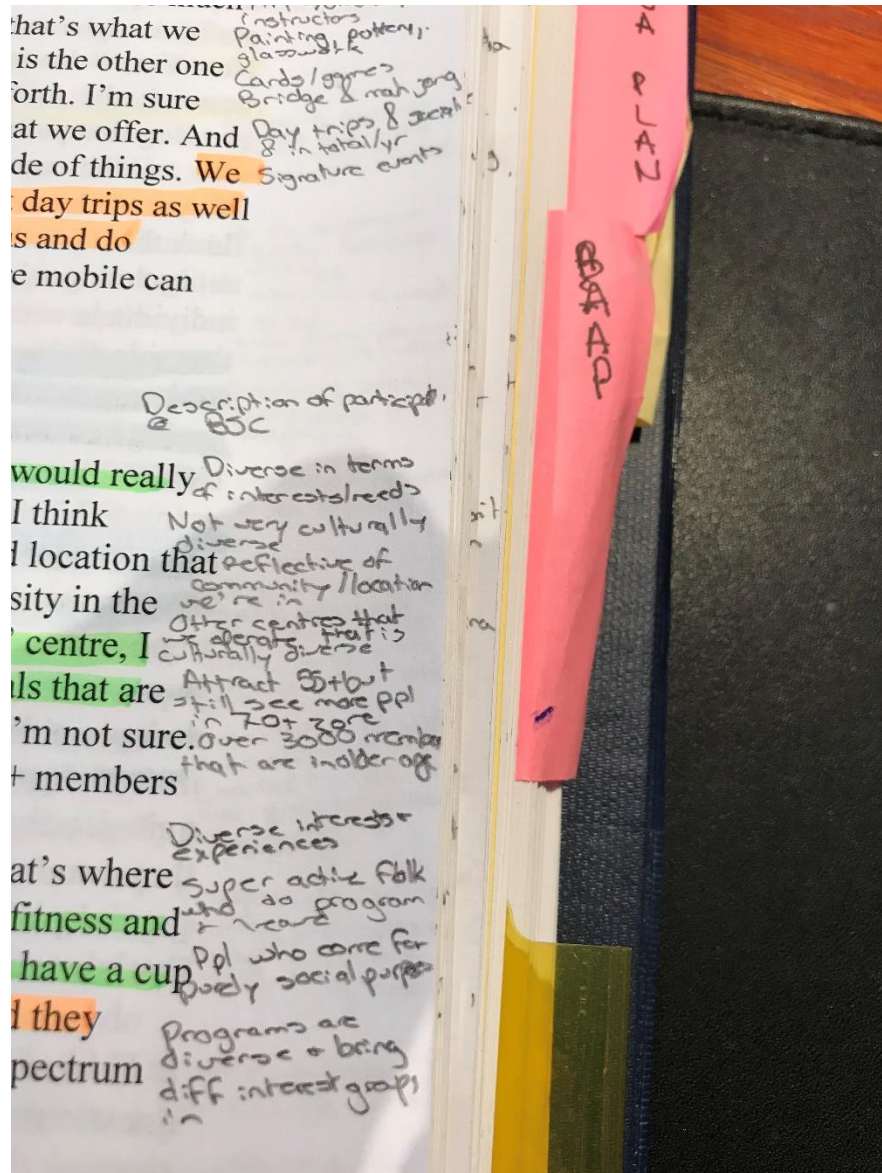 that's what we
is the other one
forth. I'm sure
at we offer. And
de of things. We
day trips as well
s and do
e mobile can
would really
I think
location that
sity in the
centre, I
ls that are
'm not sure.
+ members
at's where
fitness and
have a cup
d they
pectrum
instructors
Painting, pottery,
glasswork
Cards/games
Bridge & mah jong
Day trips &
8 in total/yr
Signature events
Description of
@ BSC
Diverse in terms
of interests/needs
Not very culturally
diverse
reflective of
community/location
we're in
Other centres that
we operate that is
culturally diverse
Attract 55+ but
still see more ppl
in 70+ zone
over 3000
that are in older
Diverse interests +
experiences
super active folk
who do program
Ppl who come for
purely social
Programs are
diverse + bring
diff interest groups
in
A PLAN